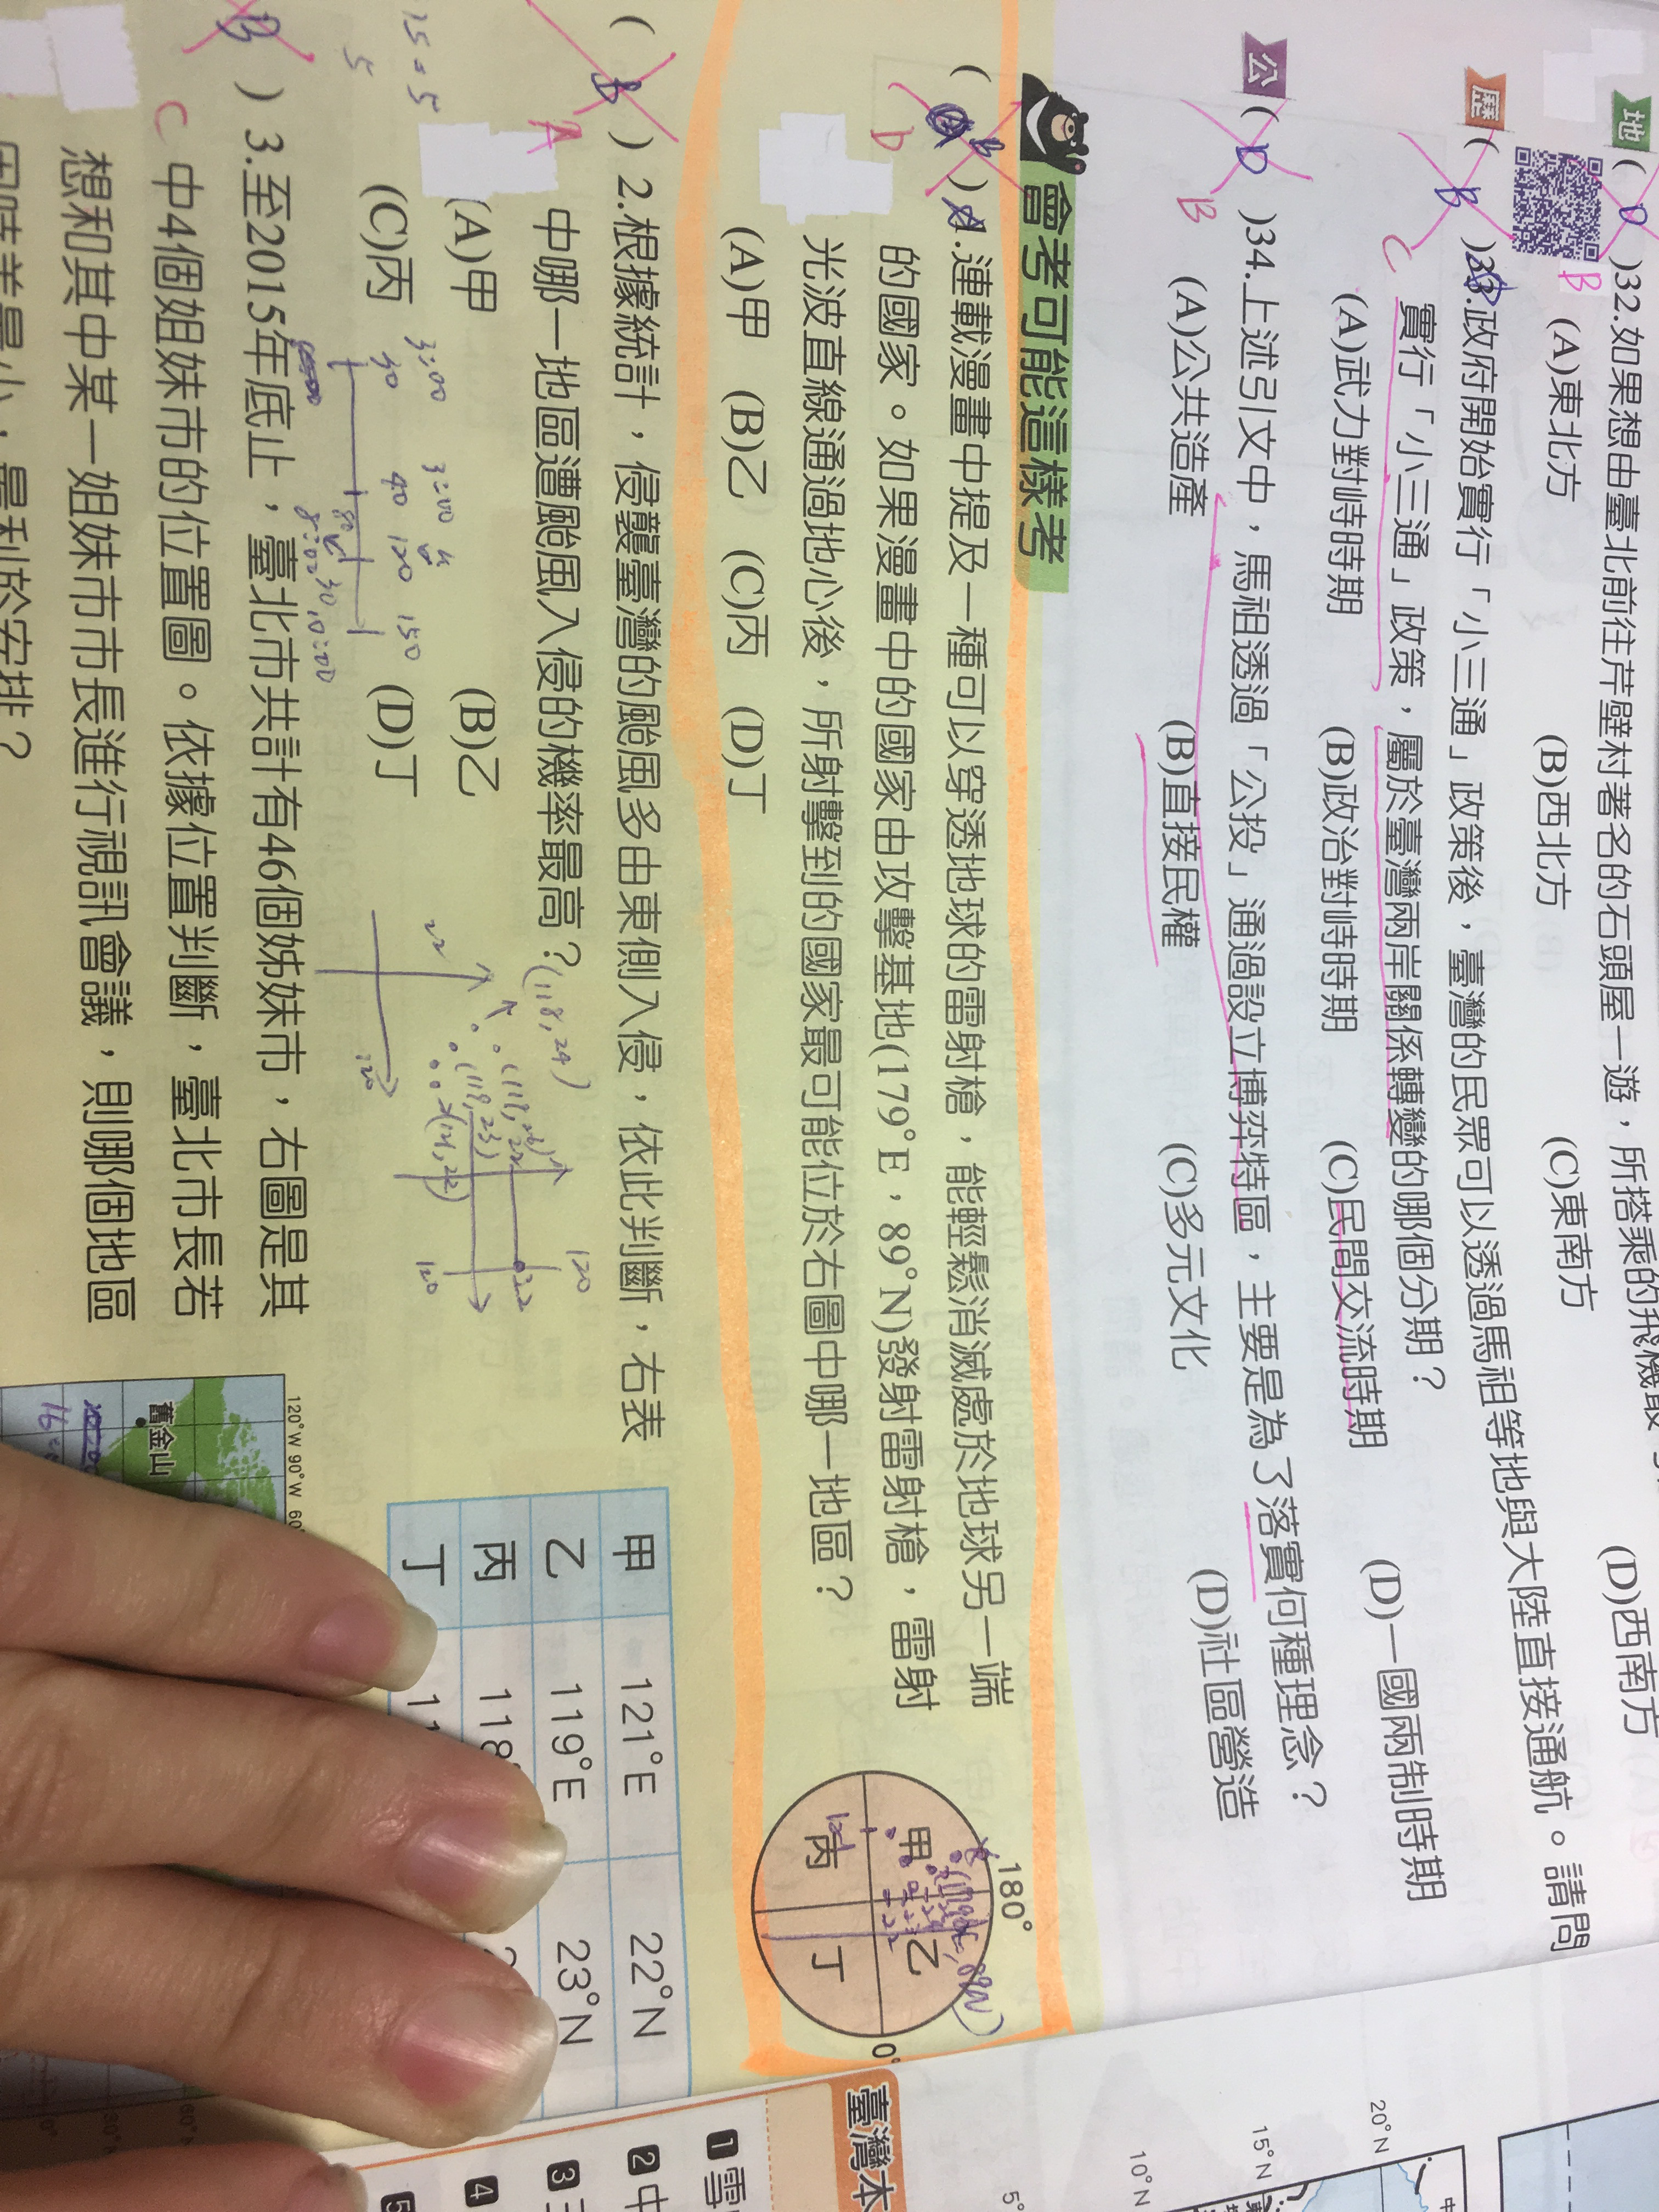 地 ( D )32.如果想由臺北前往芹壁村著名的石頭屋一遊，所搭乘的飛機最
B
(A)東北方 (B)西北方 (C)東南方 (D)西南方
歷 ( B )33.政府開始實行「小三通」政策後，臺灣的民眾可以透過馬祖等地與大陸直接通航。請問
C 實行「小三通」政策，屬於臺灣兩岸關係轉變的哪個分期？
(A)武力對峙時期 (B)政治對峙時期 (C)民間交流時期 (D)一國兩制時期
公 ( D )34.上述引文中，馬祖透過「公投」通過設立博弈特區，主要是為了落實何種理念？
B (A)公共造產 (B)直接民權 (C)多元文化 (D)社區營造
會考可能這樣考
( B )1.連載漫畫中提及一種可以穿透地球的雷射槍，能輕鬆消滅處於地球另一端
D 的國家。如果漫畫中的國家由攻擊基地(179°E，89°N)發射雷射槍，雷射
光波直線通過地心後，所射擊到的國家最可能位於右圖中哪一地區？
(A)甲 (B)乙 (C)丙 (D)丁
180°
甲 乙
丙 丁
0°
( B )2.根據統計，侵襲臺灣的颱風多由東側入侵，依此判斷，右表
A 中哪一地區遭颱風入侵的機率最高？
(A)甲 (B)乙
(C)丙 (D)丁
(118,24)
(119,23)
(121,22)
22
120
120
120
甲 121°E 22°N
乙 119°E 23°N
丙 118
丁 11
3:00 3:00
30 40 120 150
8:00 10:00
15=5
5
B ) 3.至2015年底止，臺北市共計有46個姊妹市，右圖是其
C 中4個姐妹市的位置圖。依據位置判斷，臺北市長若
想和其中某一姐妹市市長進行視訊會議，則哪個地區
因時差最小，最利於安排？
120°W 90°W 60°
舊金山
臺灣本
1 雪
2 中
3
4
5
20°N
15°N
10°N
5°